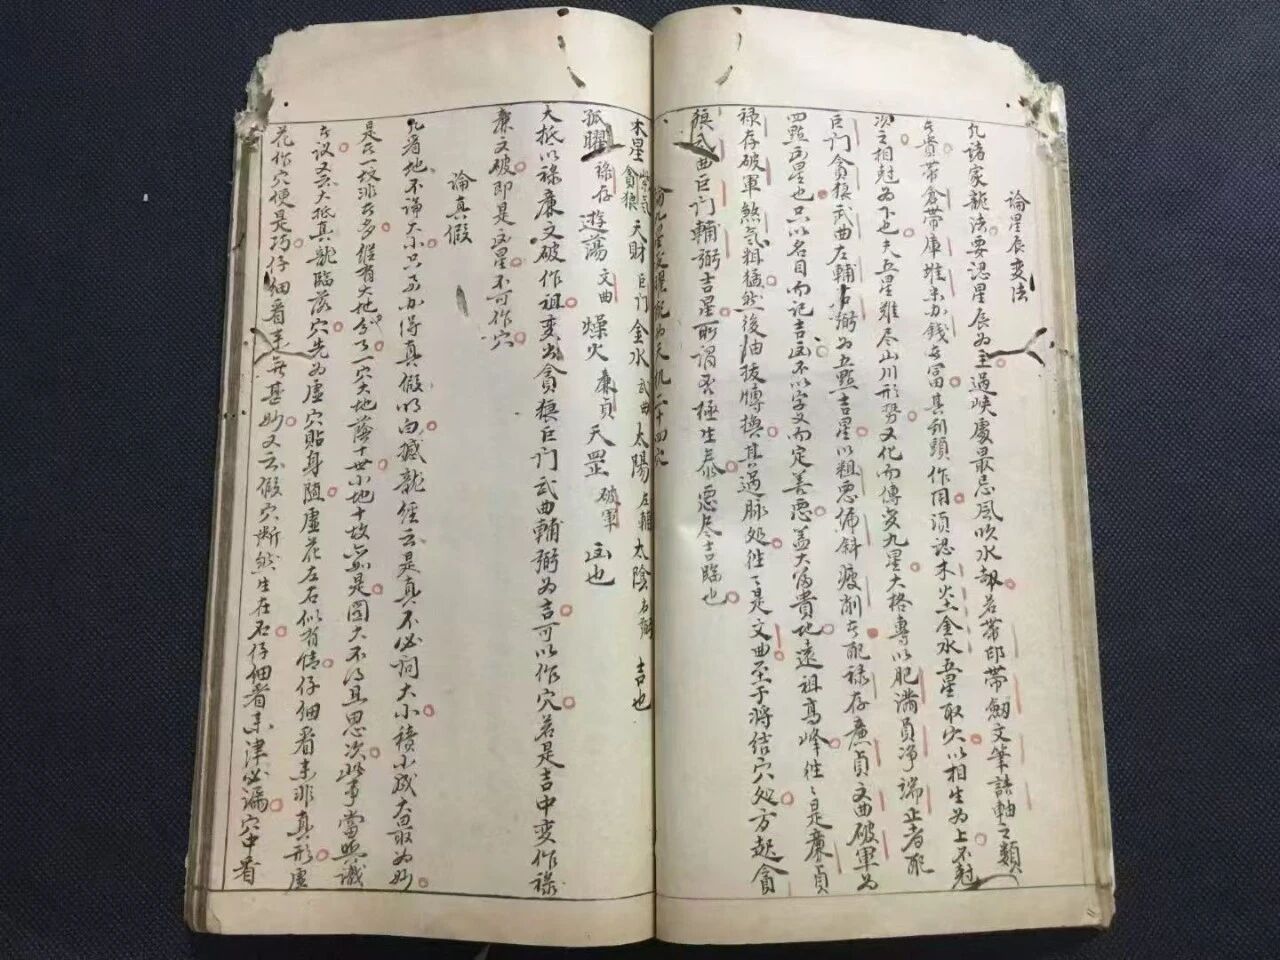 論星辰变法
凡諸家龍法要認星辰为主過峽處最忌風吹水刼若带印带劒文筆誥軸之類
者貴带倉带庫堆禾办錢者富其到頭作用須認木火土金水五星取穴以相生为上不尅
次之相尅为下也夫五星难尽山川形势又化而傳变九星大格專以肥满員净端正者配
巨门貪狼武曲左輔右弼为五㸃吉星以粗悪徧斜瘦削者配禄存廉貞文曲破軍为
四㸃凶星也只以名目而记吉凶不以字义而定善悪盖大富貴地遠祖高峰徃〻是廉貞
禄存破軍煞气粗猛然後抽拔博换其過脉処徃〻是文曲至于将结穴処方起貪
狼武曲巨门輔弼吉星所謂否極生泰悪尽吉臨也
天机二十四穴
木星 紫气 貪狼 天財 巨门 金水 武曲 太陽 左輔 太陰 右弼 吉也
孤曜 禄存 遊蕩 文曲 燥火 廉貞 天罡 破軍 凶也
大抵以禄廉文破作祖变出貪狼巨门武曲輔弼为吉可以作穴若是吉中变作禄
廉文破即是凶星不可作穴
論真假
凡看地不論大小只要办得真假明白撼龍經云是真不必问大小積小成大最为妙
是在一坟非在多縱有大地分了一穴大地蔭十世小地十坟亦是圖大不得且思次此事當與識
者议又云大抵真龍臨落穴先为虚穴貼身随虚花左右似有情仔细看来非真形虚
花作穴便是巧仔细看来無甚妙又云假穴断然生在右仔细看来津必漏穴中看